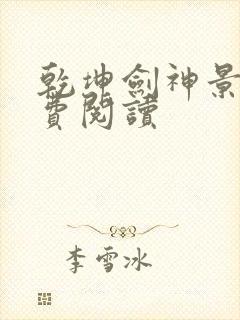 乾坤劍神景
費閱讀
李雪冰